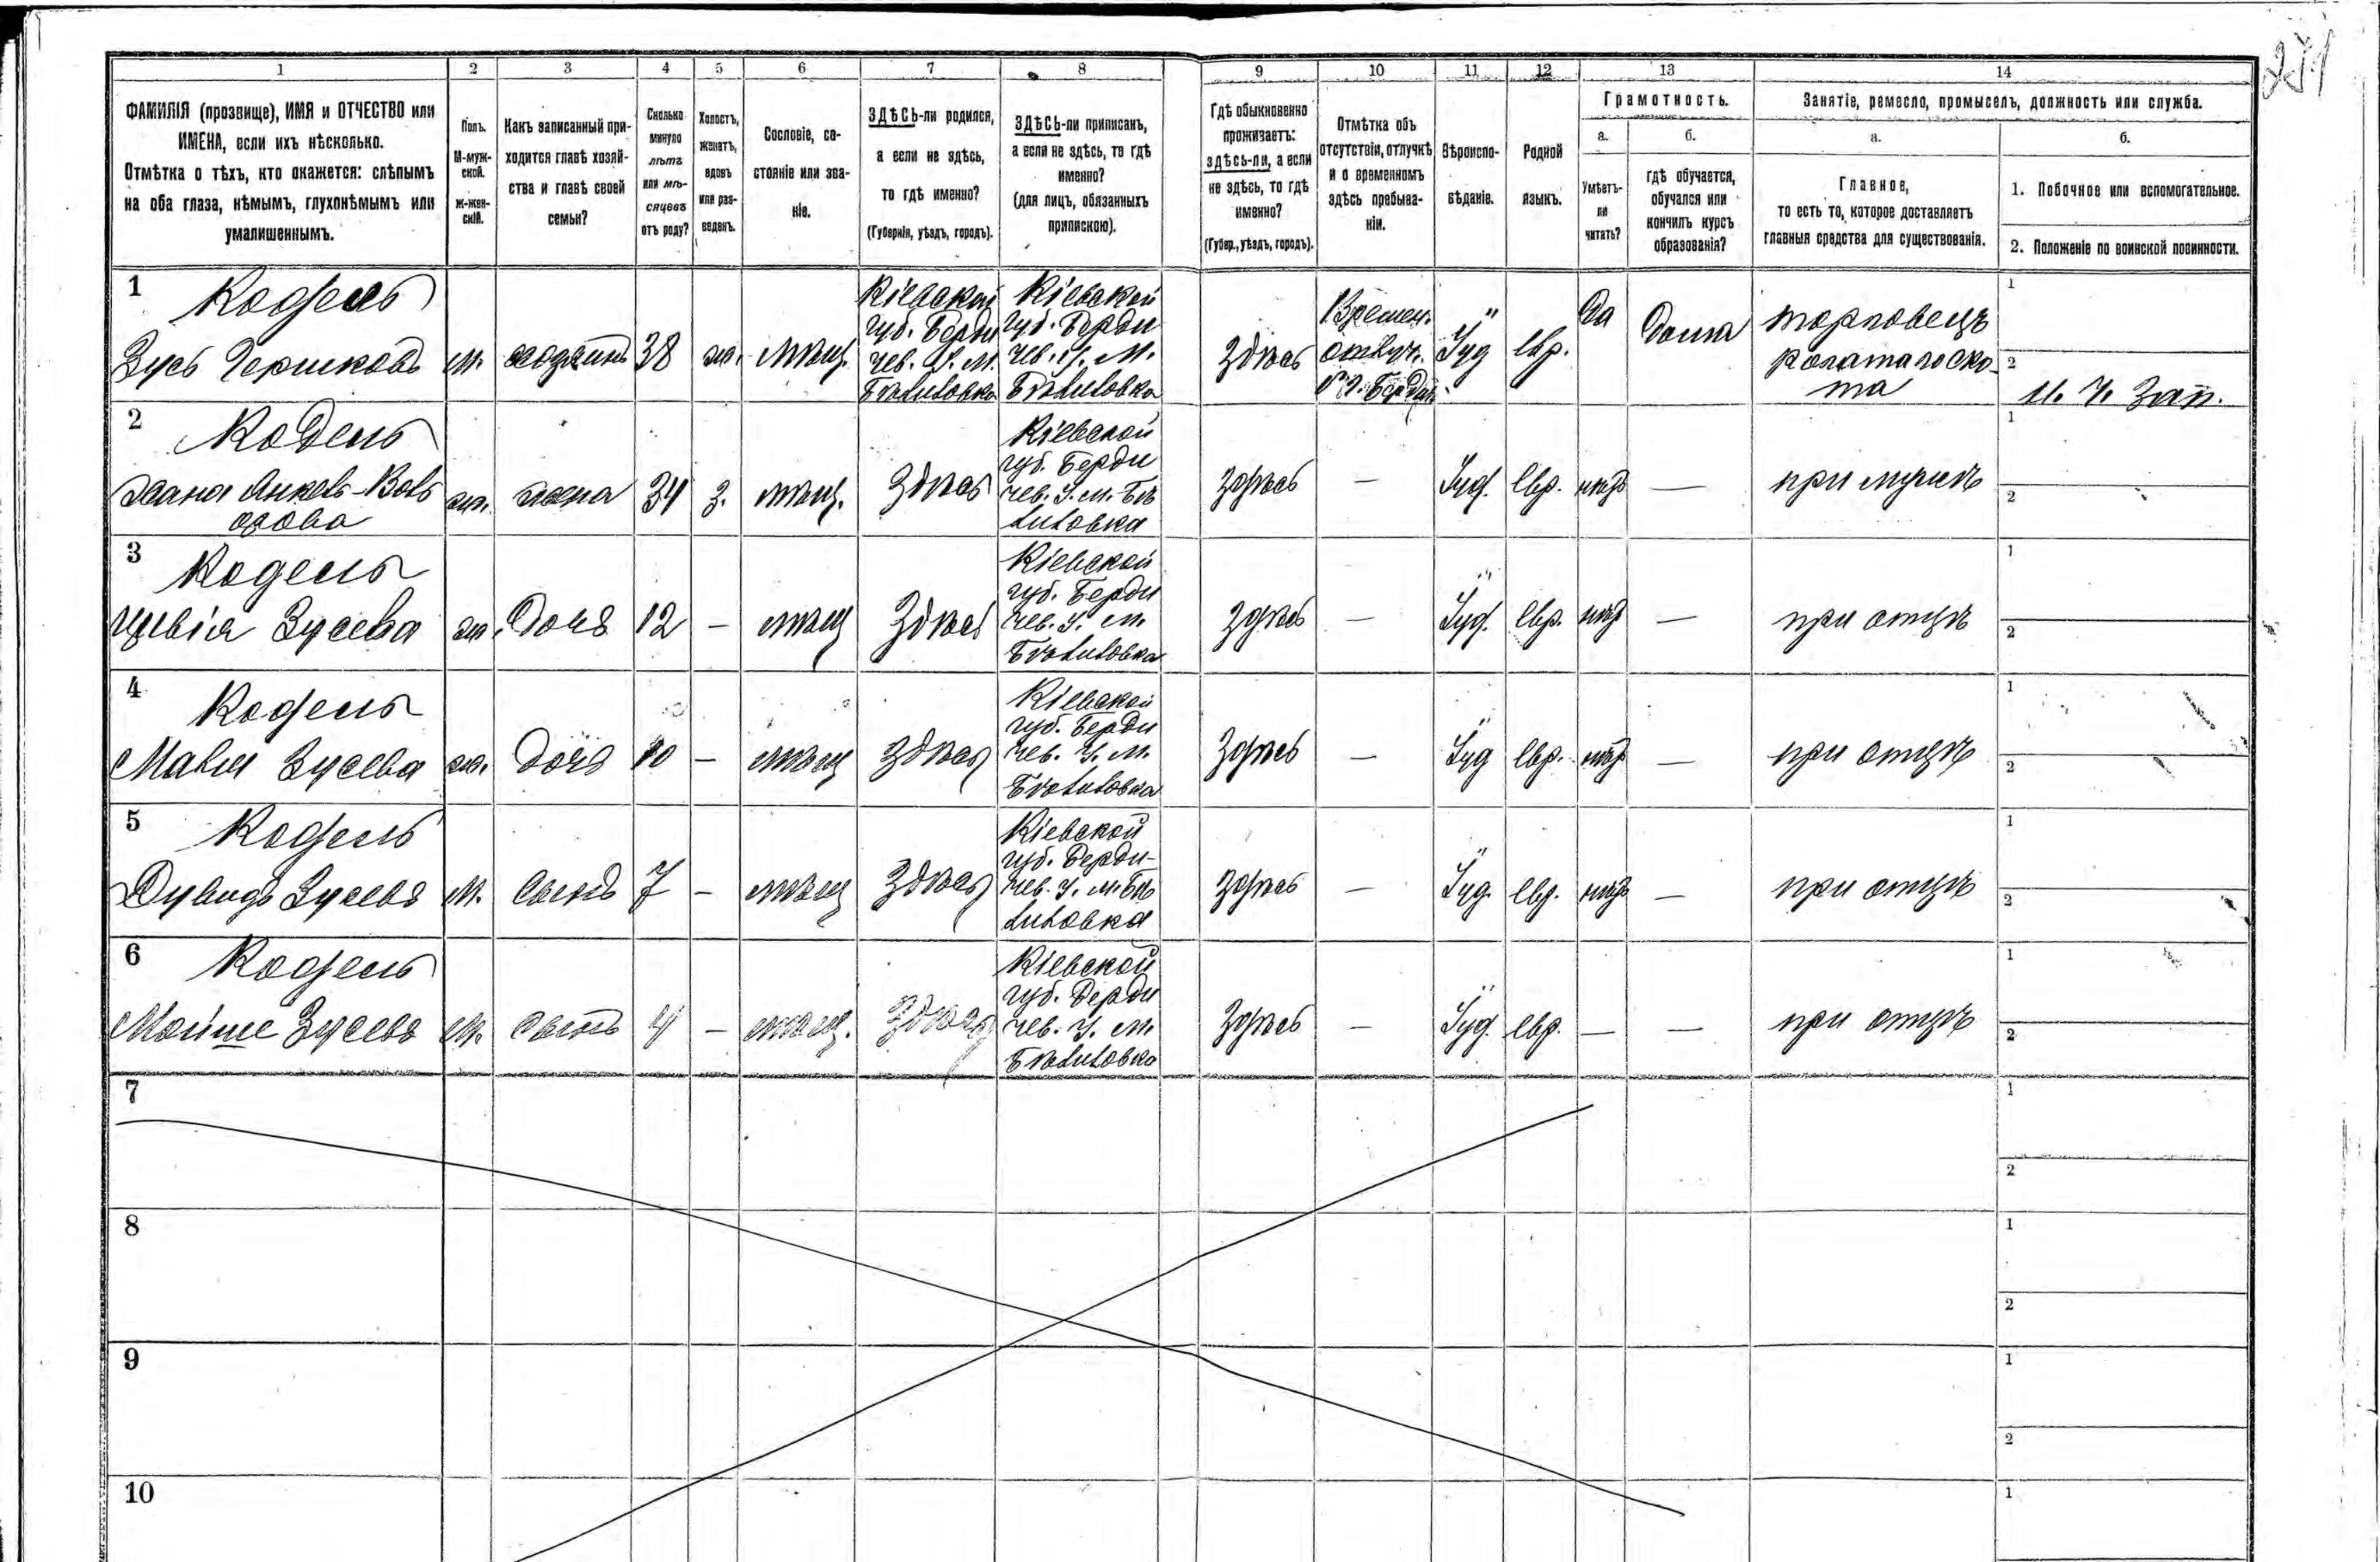 251
1 2 3 4 5 6 7 8 9 10 11 12 13 14
ФАМИЛІЯ (прозвище), ИМЯ и ОТЧЕСТВО или
ИМЕНА, если ихъ нѣсколько.
Отмѣтка о тѣхъ, кто окажется: слѣпымъ
на оба глаза, нѣмымъ, глухонѣмымъ или
умалишеннымъ.
Полъ.
М-муж-
ской.
ж-жен-
скій.
Какъ записанный при-
ходится главѣ хозяй-
ства и главѣ своей
семьи?
Сколько
минуло
лѣтъ
или мѣ-
сяцевъ
отъ роду?
Холостъ,
женатъ,
вдовъ
или раз-
веденъ.
Сословіе, со-
стояніе или зва-
ніе.
ЗДѢСЬ-ли родился,
а если не здѣсь,
то гдѣ именно?
(Губернія, уѣздъ, городъ).
ЗДѢСЬ-ли приписанъ,
а если не здѣсь, то гдѣ
именно?
(для лицъ, обязанныхъ
припискою).
Гдѣ обыкновенно
проживаетъ:
здѣсь-ли, а если
не здѣсь, то гдѣ
именно?
(Губер., уѣздъ, городъ).
Отмѣтка объ
отсутствіи, отлучкѣ
и о временномъ
здѣсь пребыва-
ніи.
Вѣроиспо-
вѣданіе.
Родной
языкъ.
Грамотность.
а.
Умѣетъ-
ли
читать?
б.
гдѣ обучается,
обучался или
кончилъ курсъ
образованія?
Занятіе, ремесло, промыселъ, должность или служба.
а.
Главное,
то есть то, которое доставляетъ
главныя средства для существованія.
б.
1. Побочное или вспомогательное.
2. Положеніе по воинской повинности.
1
Кодель
Зусь Гершковъ
м.
хозяинъ
38
ж.
мѣщ.
Кіевской
губ. Берди
чев. У. М.
Бѣлиловка
Кіевской
губ. Берди
чев. У. М.
Бѣлиловка
Здѣсь
Времен.
отлуч.
Іуд
Евр.
Да
Дома
торговецъ
рогатаго ско-
та
1
2
И. Ч. Зап.
2
Кодель
Хана Анкель-Вов
ова
ж.
жена
34
З.
мѣщ.
Здѣсь
Кіевской
губ. Берди
чев. У. М. Бѣ
лиловка
Здѣсь
—
Іуд.
Евр.
нѣтъ
—
при мужѣ
1
2
3
Кодель
Цивія Зусева
ж.
Дочь
12
—
мѣщ
Здѣсь
Кіевской
губ. Берди
чев. У. М.
Бѣлиловка
Здѣсь
—
Іуд.
Евр.
нѣтъ
—
при отцѣ
1
2
4
Кодель
Маля Зусева
ж.
Дочь
10
—
мѣщ
Здѣсь
Кіевской
губ. Берди
чев. У. М.
Бѣлиловка
Здѣсь
—
Іуд
Евр.
нѣтъ
—
при отцѣ
1
2
5
Кодель
Дувидъ Зусевъ
М.
Сынъ
7
—
мѣщ
Здѣсь
Кіевской
губ. Берди-
чев. У. М. Бѣ
лиловка
Здѣсь
—
Іуд.
Евр.
нѣтъ
—
при отцѣ
1
2
6
Кодель
Мойше Зусевъ
М.
Сынъ
4
—
мѣщ.
Здѣсь
Кіевской
губ. Берди
чев. У. М.
Бѣлиловка
Здѣсь
—
Іуд.
Евр.
—
—
при отцѣ
1
2
7
1
2
8
1
2
9
1
2
10
1